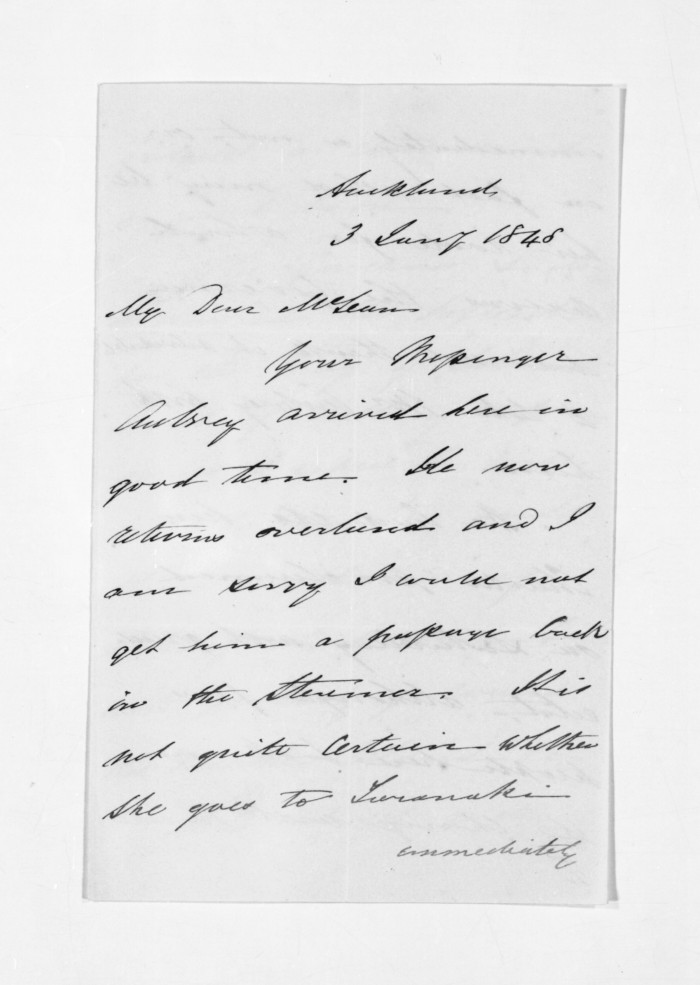 Auckland
3 Jany 1848
My Dear McLean
Your Messenger
Aubrey arrived here in
good time. He now
returns overland and I
am sorry I could not
get him a passage back
in the Steamer. It is
not quite Certain Whether
She goes to Taranaki
immediately